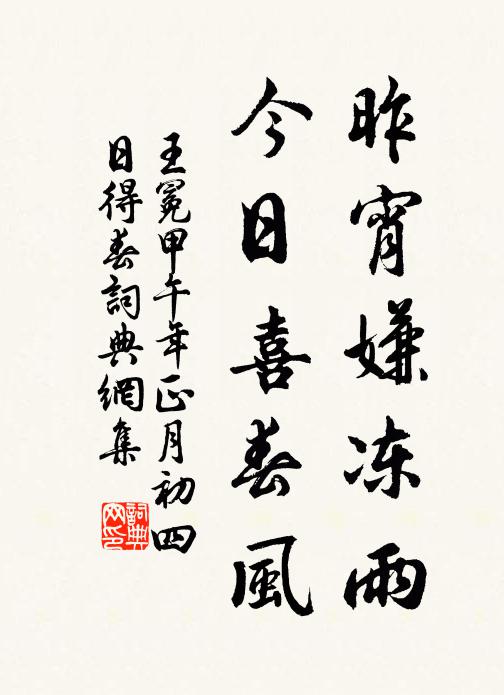 昨宵嫌冻雨
今日喜春風
王冕甲午年正月初四
日得春詞典網集
詞典
网印